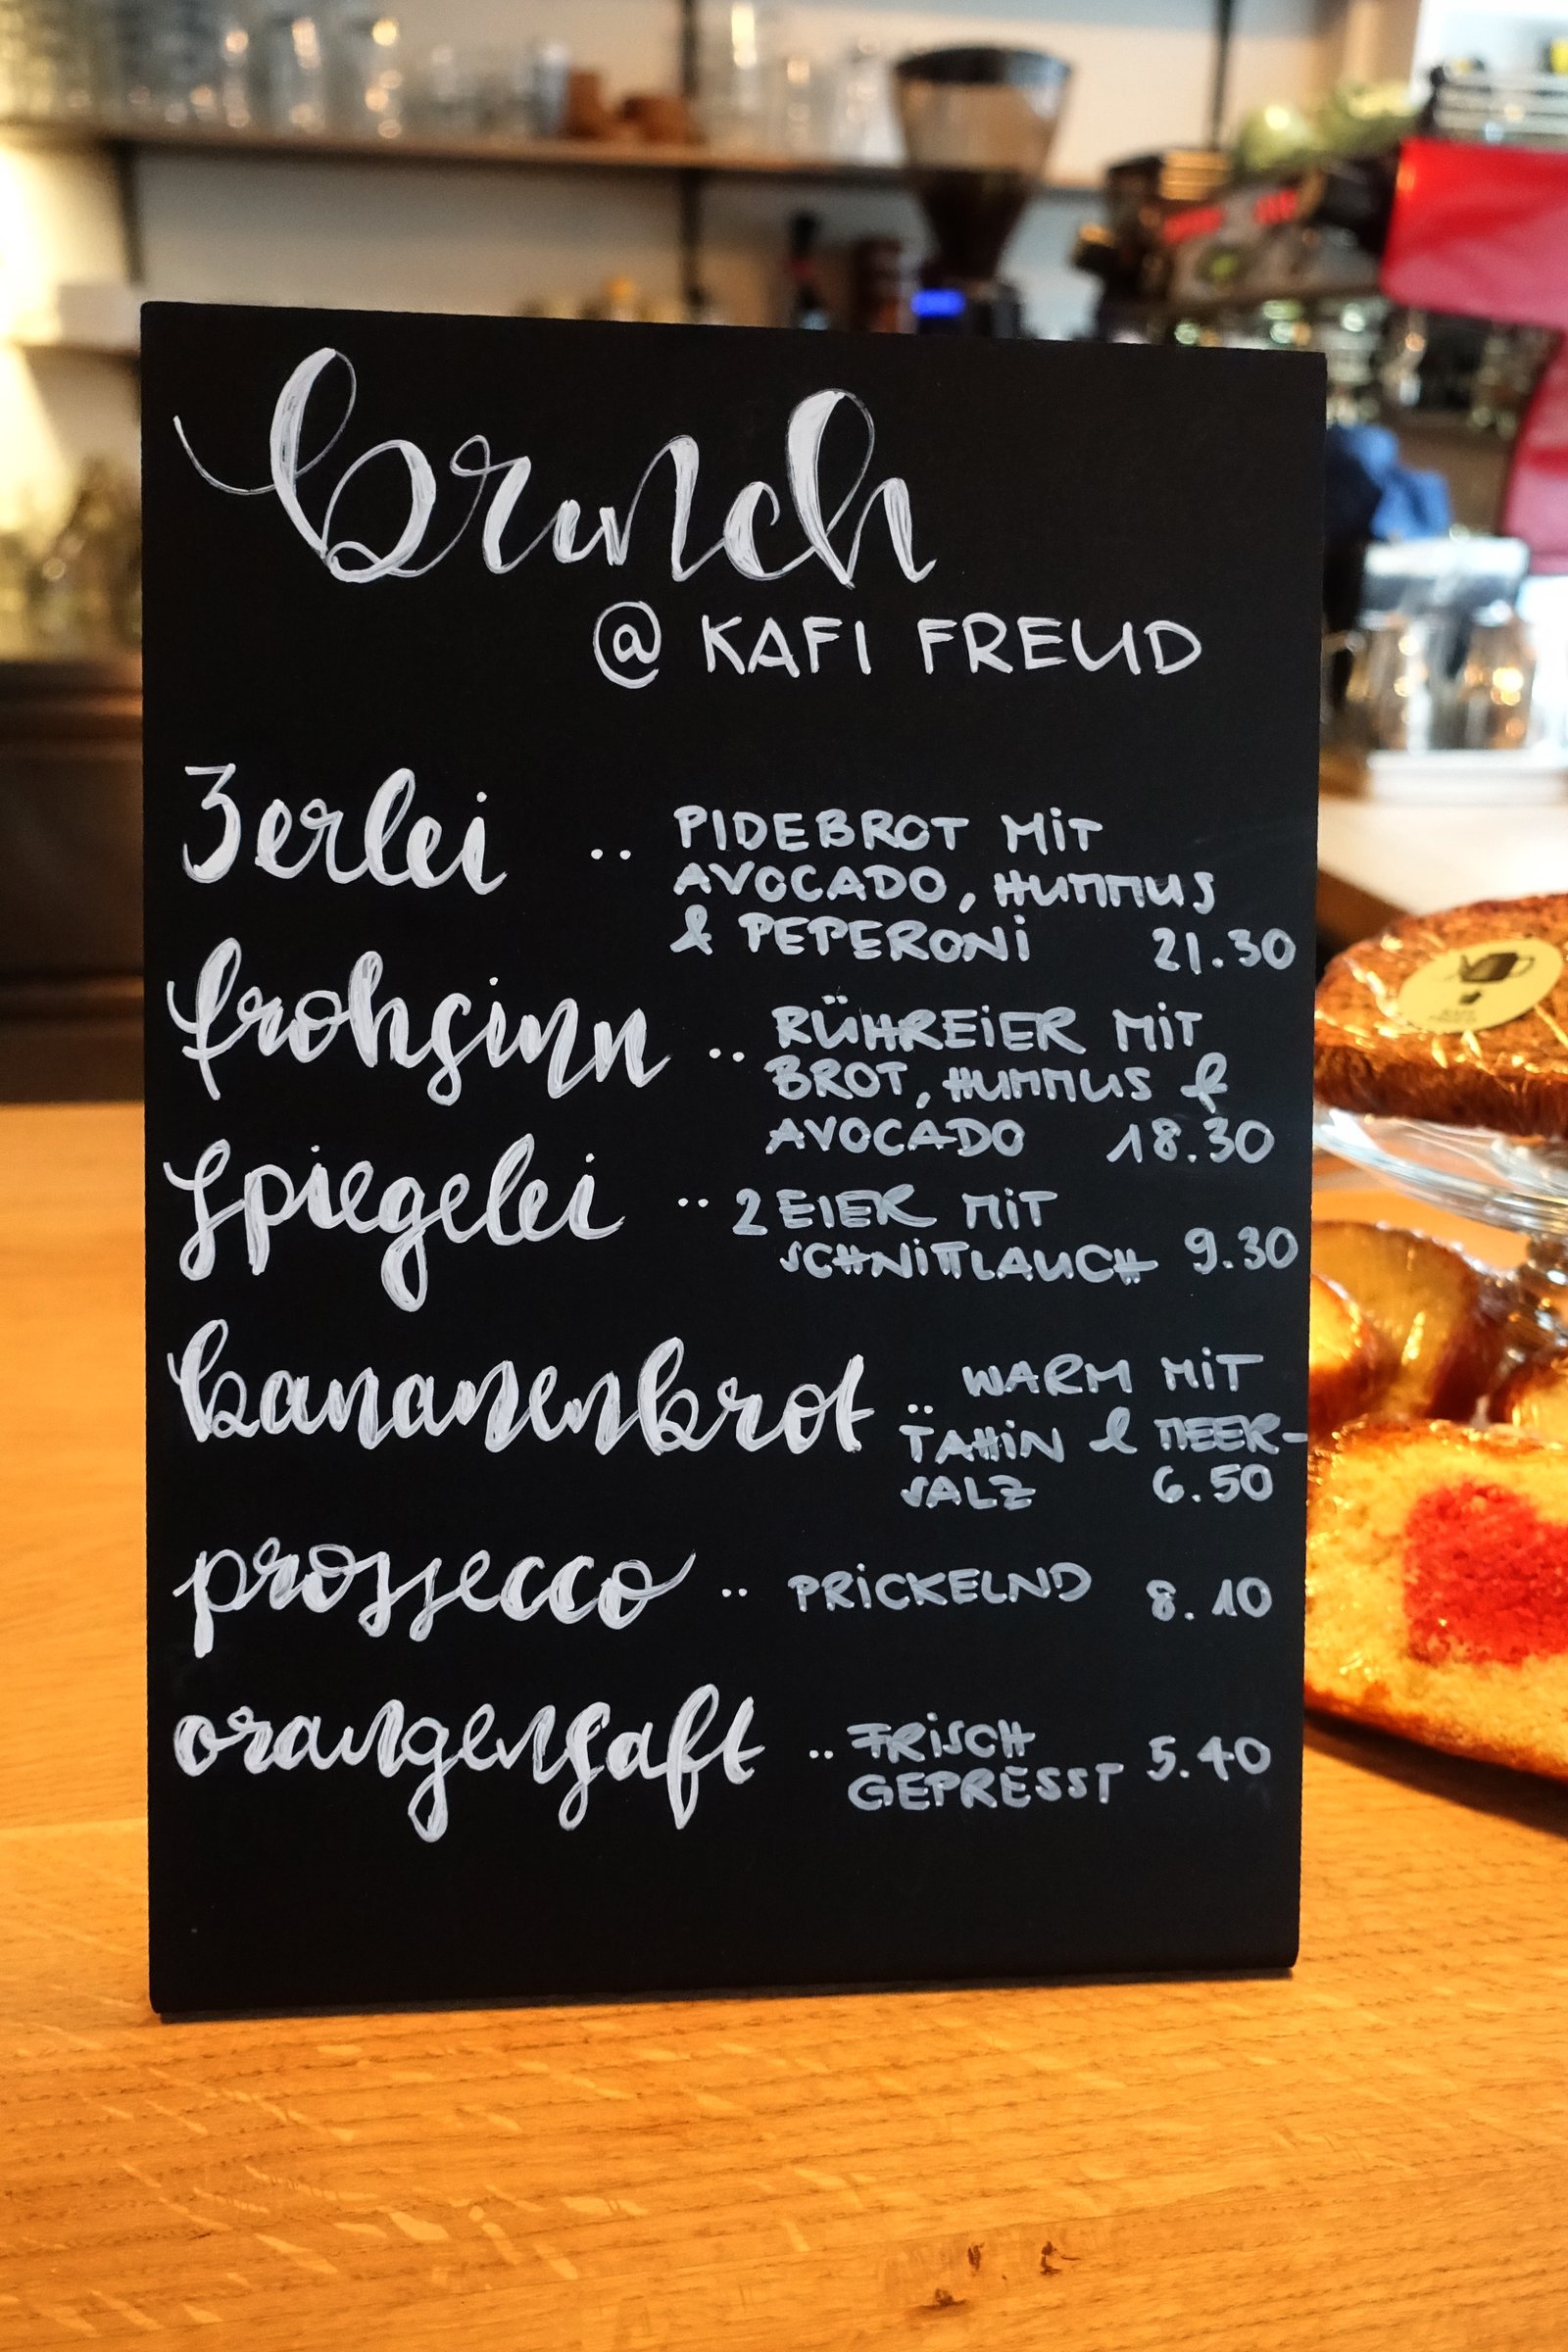 brunch
@ KAFI FREUD
3erlei .. PIDEBROT MIT
AVOCADO, HUMMUS
& PEPERONI 21.30
frohsinn .. RÜHREIER MIT
BROT, HUMMUS &
AVOCADO 18.30
spiegelei .. 2 EIER MIT
SCHNITTLAUCH 9.30
bananenbrot .. WARM MIT
TAHIN & MEER-
SALZ 6.50
prossecco .. PRICKELND 8.10
orangensaft .. FRISCH
GEPRESST 5.40